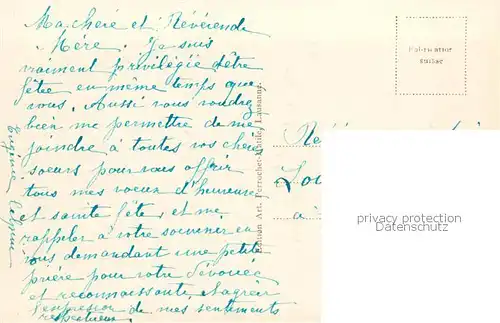 Ma chère et Révérende
Mère. Je suis
vraiment privilégiée d'être
fêtée en même temps que
vous. Aussi vous voudrez
bien me permettre de me
joindre à toutes vos chères
soeurs pour vous offrir
tous mes voeux d'heureuse
et sainte fête, et me
rappeler à votre souvenir en
vous demandant une petite
prière pour votre dévouée
et reconnaissante, et agréer
l'expression de mes sentiments
respectueux.
Eugénie
Edition Art. Perrochet-Matile, Lausanne
Lou
à
privacy protection
Datenschutz